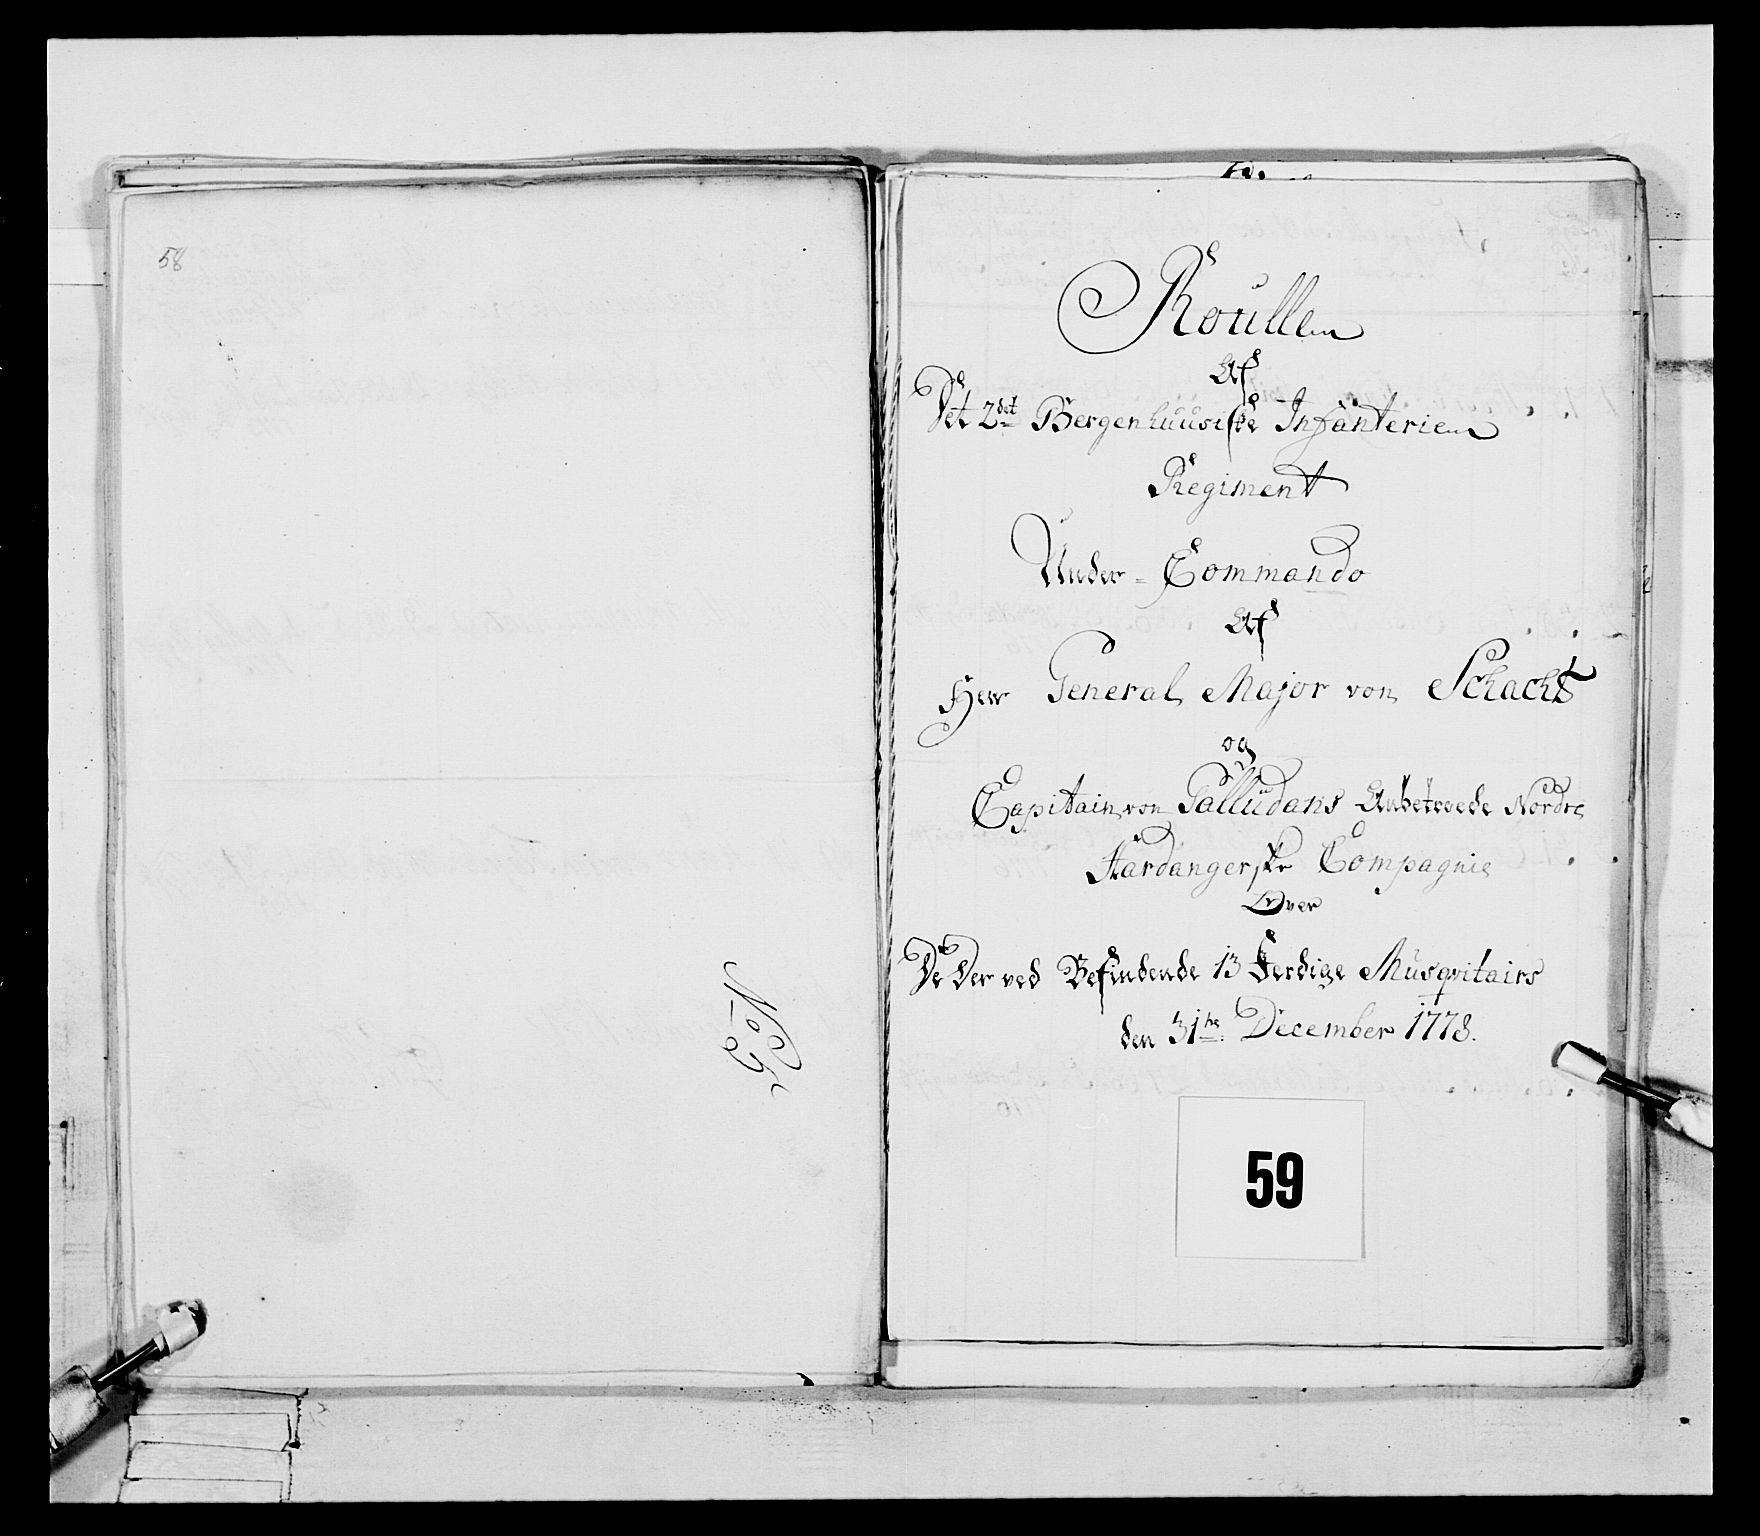 58
No 5
Roullen
Af
Det 2det Bergenhuusiske Infanterie
Regiment
Under = Commando
Af
Herr General Major von Schacht
og
Capitain von Palludans Anbetroede Nordre
Hardangerske Compagnie
Over
De Der ved Befindende 13 Ferdige Musqvitairs
den 31te December 1778.
59